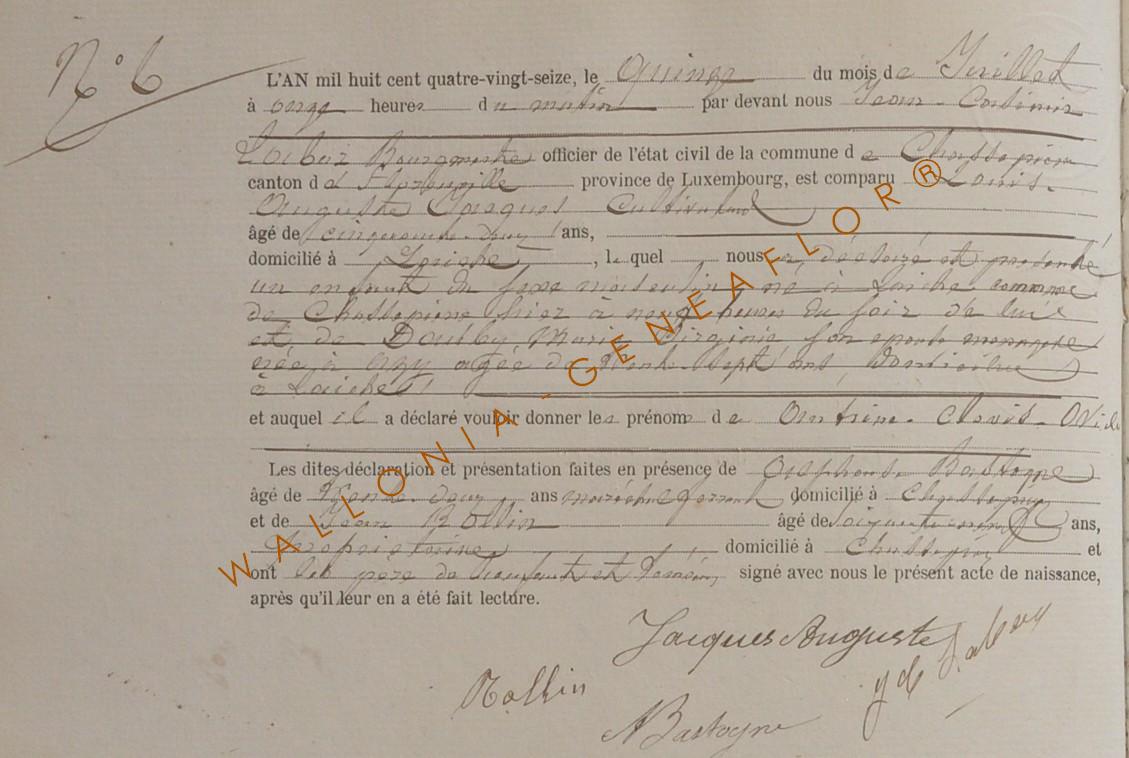 N° 6
L'AN mil huit cent quatre-vingt-seize, le quinze du mois de Juillet
à onze heures du matin par devant nous Jean-Casimir
Bourgmestre officier de l'état civil de la commune de Chassepierre
canton de Florenville province de Luxembourg, est comparu Louis-
Auguste Jacques Cultivateur
âgé de cinquante-deux ans,
domicilié à Laiche, lequel nous a déclaré et présenté
un enfant du sexe masculin né à Laiche commune
de Chassepierre hier à neuf heures du soir de lui
et de Marie Virginie son épouse ménagère
née à Izy agée de trente-sept ans, domiciliée
à Laiche
et auquel il a déclaré vouloir donner les prénoms de Clovis-Ovide
Les dites déclaration et présentation faites en présence de Alphonse Bastogne
âgé de trente-deux ans maréchal ferrant domicilié à Chassepierre
et de Jean Rollin âgé de soixante ans,
propriétaire domicilié à Chassepierre et
ont les père de l'enfant et témoins signé avec nous le présent acte de naissance,
après qu'il leur en a été fait lecture.
Jacques Auguste
Rollin
A Bastogne
WALLONIA-GENEAFLOR®